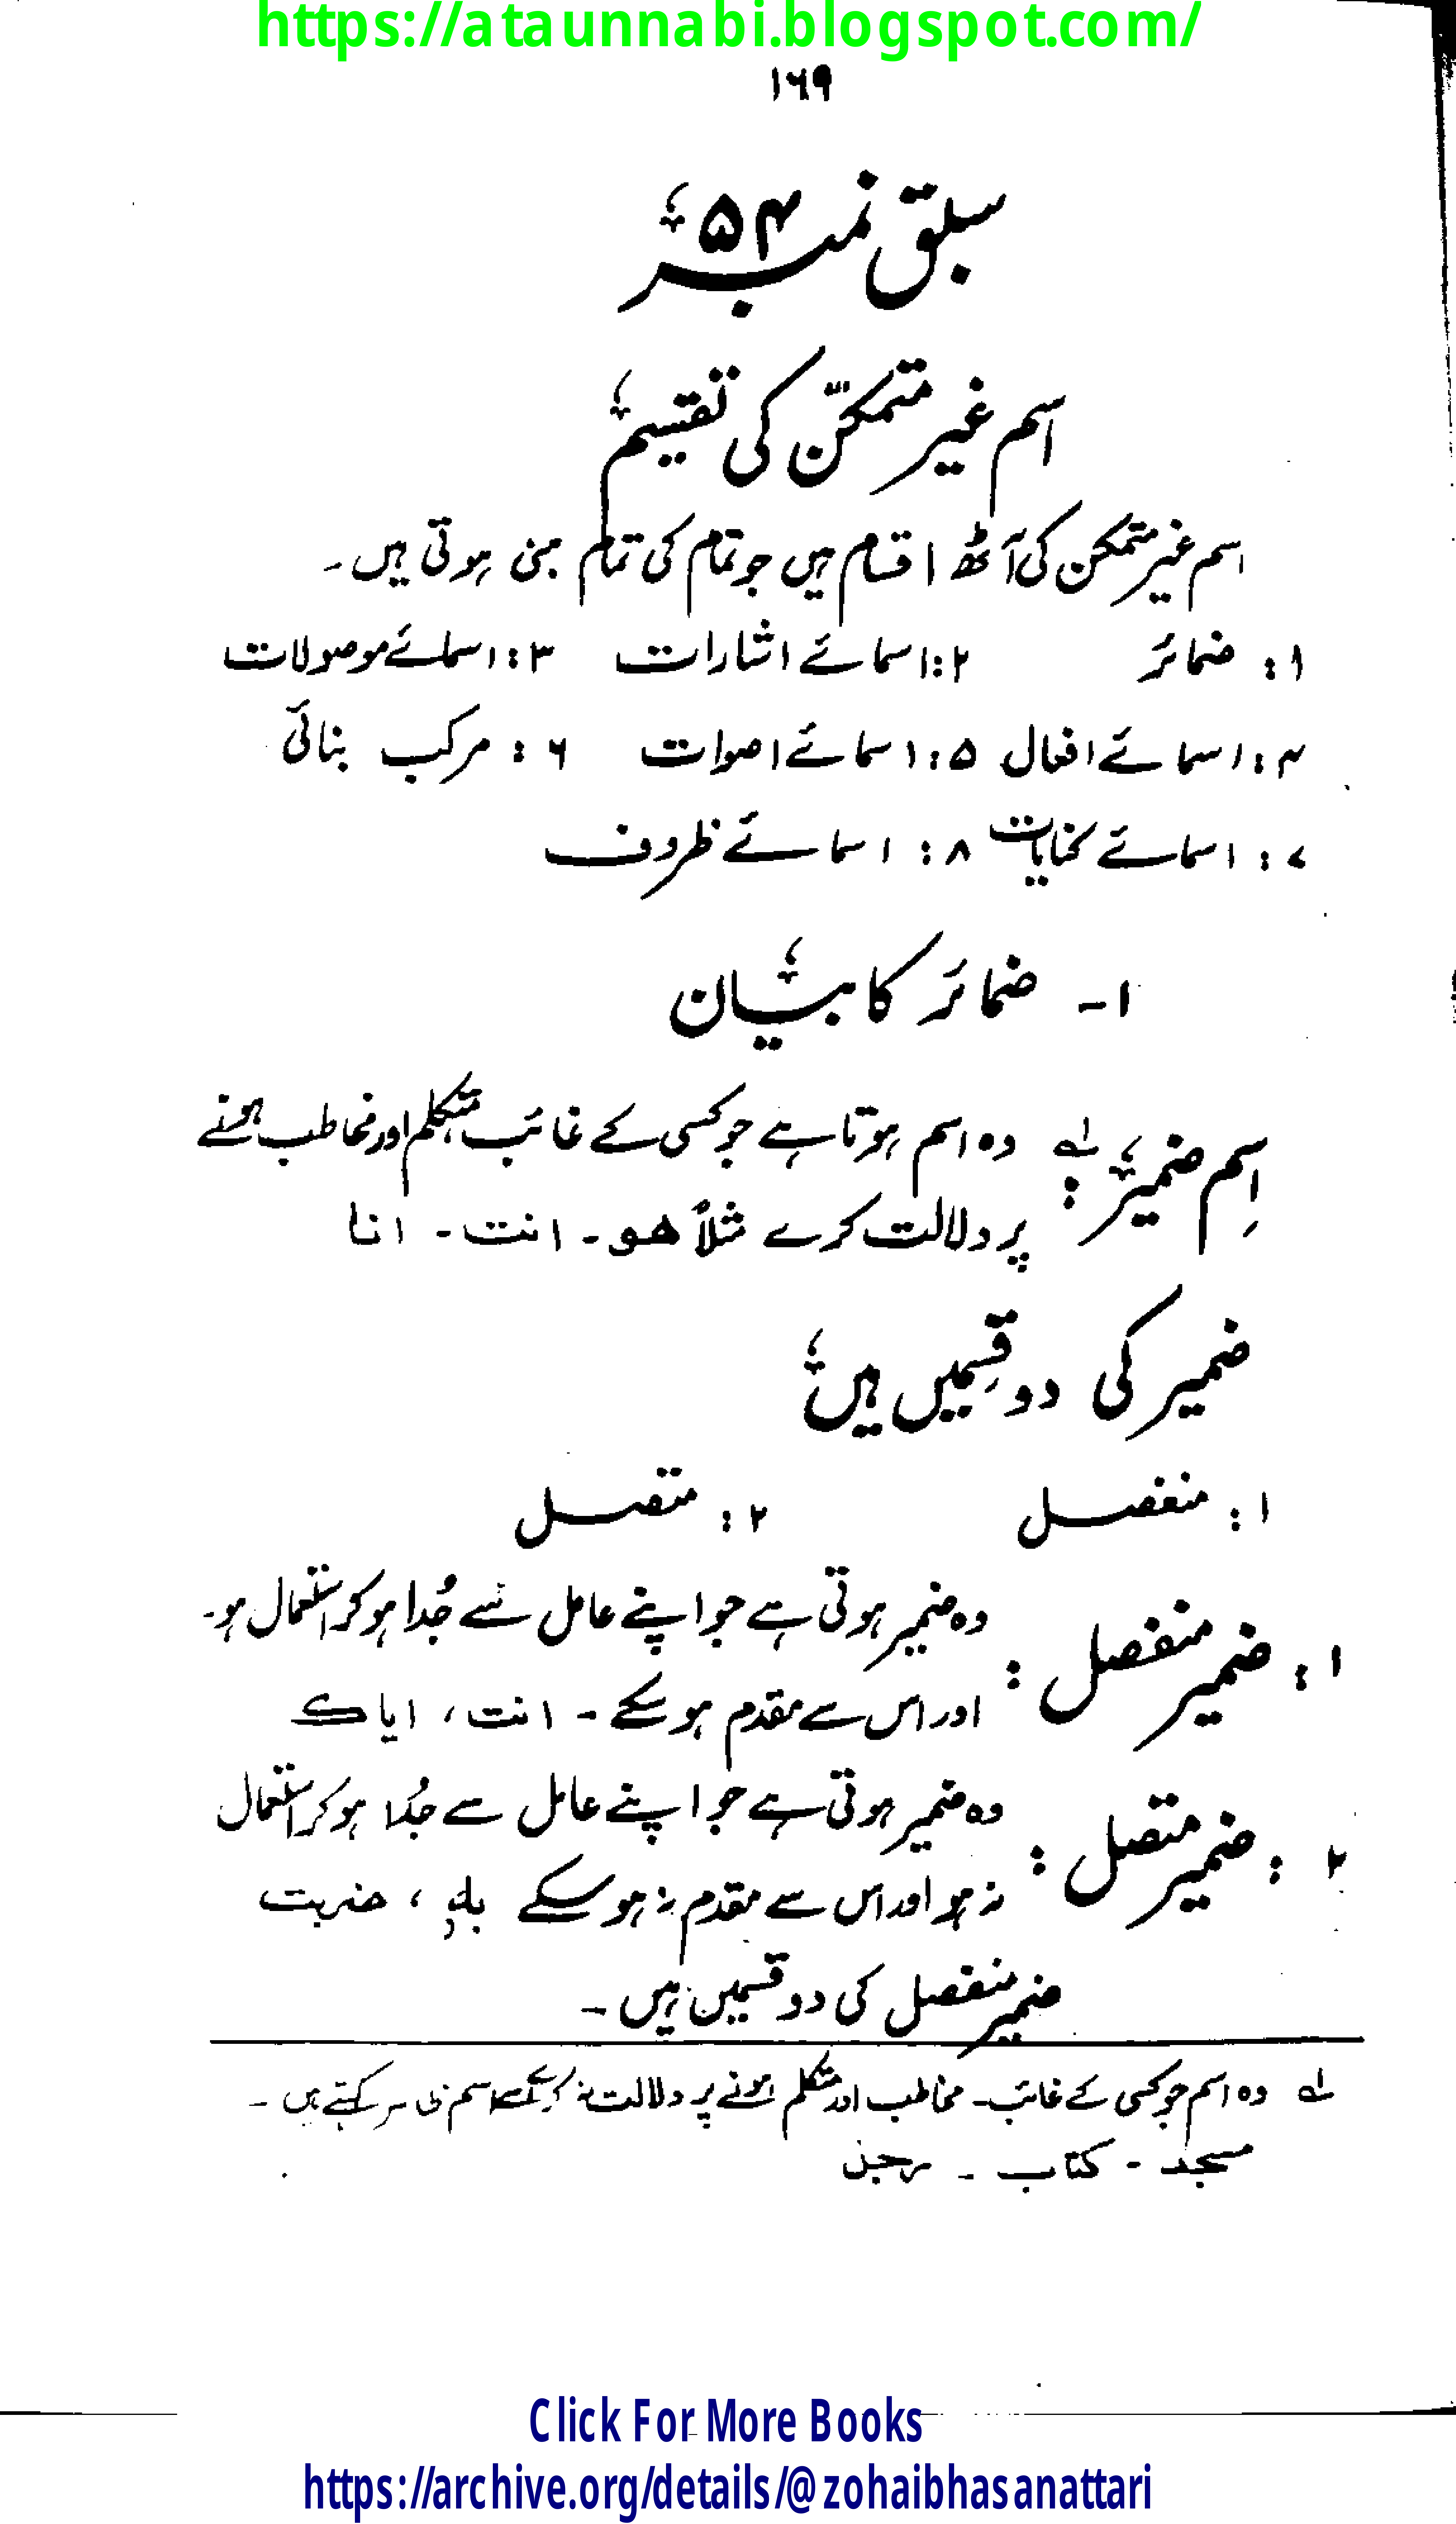 https://ataunnabi.blogspot.com/
۱۶۹
سبق نمبر ۵۴
اسم غیر متمکّن کی تقسیم
اسم غیر متمکن کی آٹھ اقسام ہیں جو تمام کی تمام مبنی ہوتی ہیں۔
۱: ضمائر ۲: اسمائے اشارات ۳: اسمائے موصولات
۴: اسمائے افعال ۵: اسمائے اصوات ۶: مرکب بنائی
۷: اسمائے کنایات ۸: اسمائے ظروف
۱- ضمائر کا بیان
اِسم ضمیر لہ: وہ اسم ہوتا ہے جو کسی کے غائب متکلم اور مخاطب ہونے
پر دلالت کرے مثلاً ھو۔ انت۔ انا
ضمیر کی دو قِسمیں ہیں
۱: منفصل ۲: متصل
۱: ضمیر منفصل: وہ ضمیر ہوتی ہے جو اپنے عامل سے جُدا ہو کر استعمال ہو۔
اور اس سے مقدم ہو سکے۔ انت، ایاک
۲: ضمیر متصل: وہ ضمیر ہوتی ہے جو اپنے عامل سے جُدا ہو کر استعمال
نہ ہو اور اس سے مقدم نہ ہو سکے بلہٖ، ضربت
ضمیر منفصل کی دو قسمیں ہیں۔
لہ وہ اسم جو کسی کے غائب۔ مخاطب اور متکلم ہونے پر دلالت نہ کرے اسے اسم ظاہر کہتے ہیں۔
مسجد - کتاب - رجل
Click For More Books
https://archive.org/details/@zohaibhasanattari